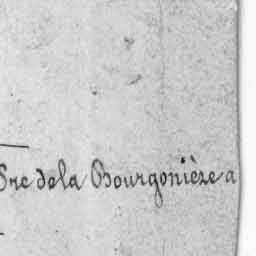 Sre de la Bourgonièze a